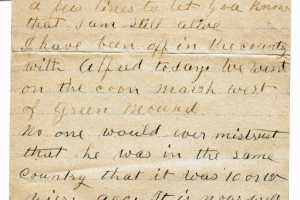 a few lines to let you know
that I am still alive
I have been off in the country
with Alfred today. We went
on the coon march west
of Green Mound
No one would ever mistrust
that he was in the same
country that it was 10 or 12
years ago. It is now